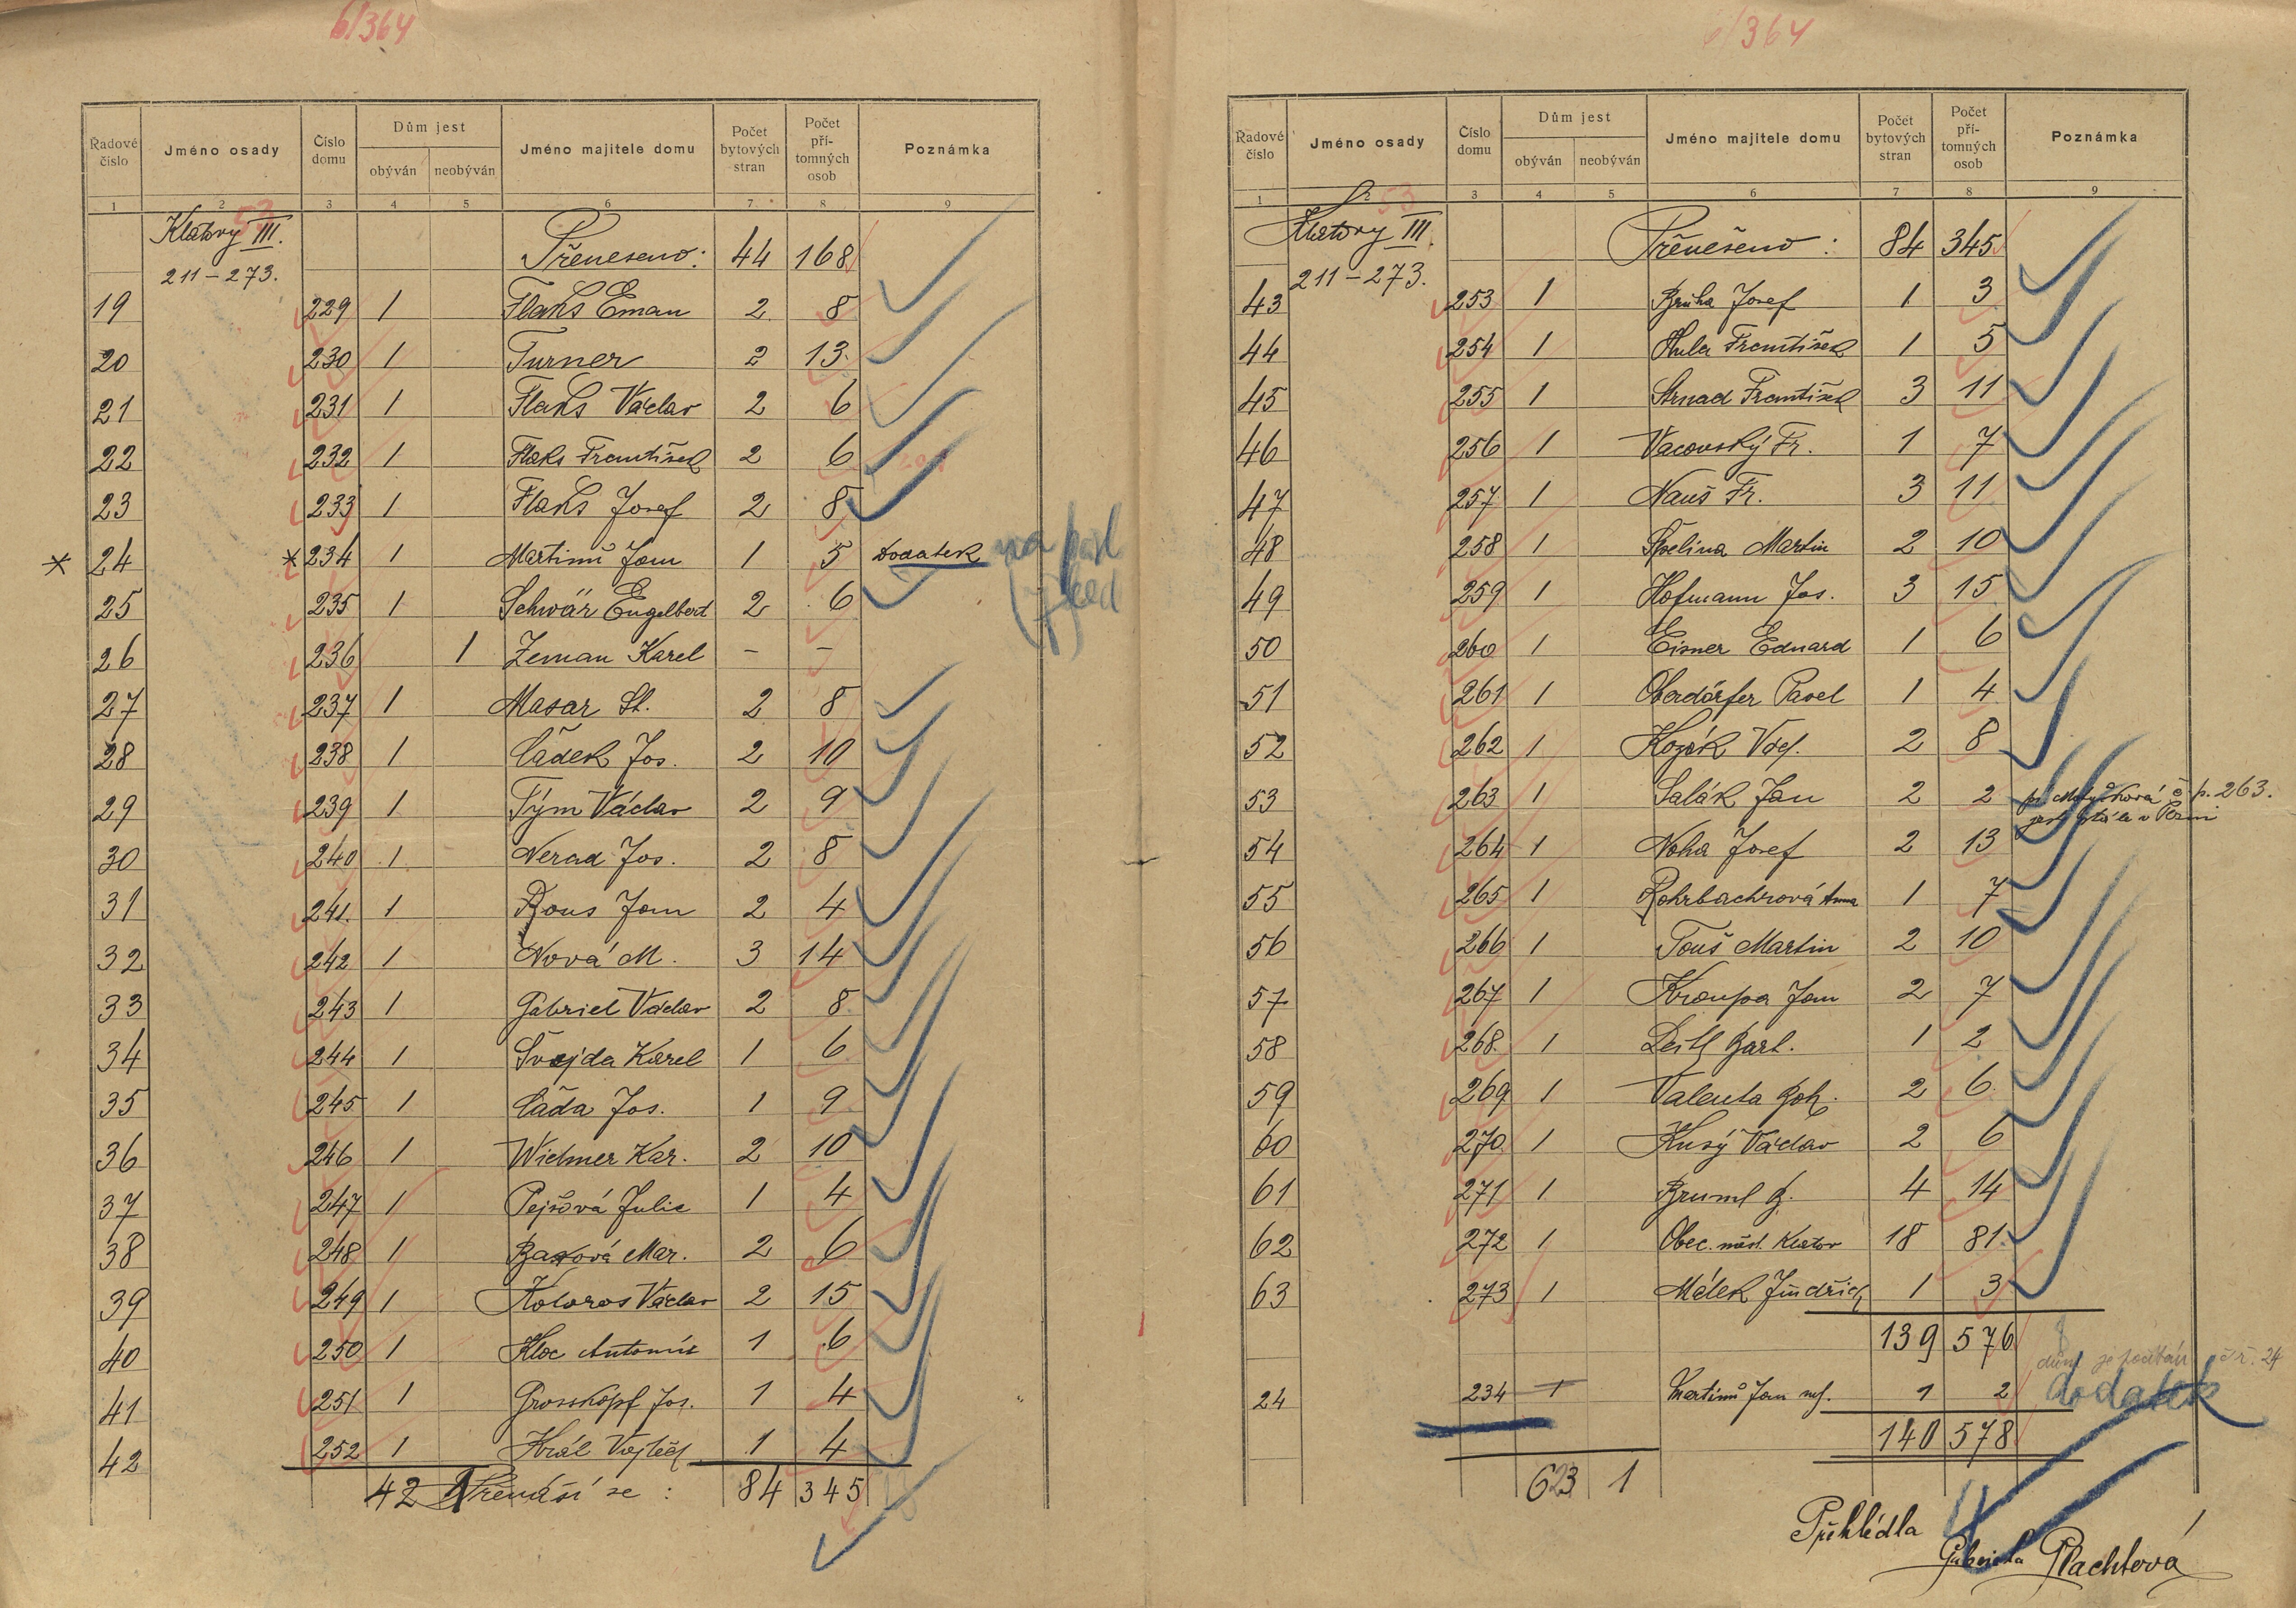 6/364
Řadové číslo | Jméno osady | Číslo domu | Dům jest obýván | neobýván | Jméno majitele domu | Počet bytových stran | Počet přítomných osob | Poznámka
1 2 3 4 5 6 7 8 9
53
Klatovy III. Přeneseno: 44 168
211-273.
19 229 1 Flaks Eman 2 8
20 230 1 Turner 2 13
21 231 1 Flaks Václav 2 6
22 232 1 Flaks František 2 6
23 233 1 Flaks Josef 2 8
* 24 * 234 1 Martinů Jan 1 5 Dodatek
25 235 1 Schwär Engelbert 2 6
26 236 1 Zeman Karel - -
27 237 1 Masar St. 2 8
28 238 1 Čádek Jos. 2 10
29 239 1 Tým Václav 2 9
30 240 1 Nerad Jos. 2 8
31 241. 1 Rous Jan 2 4
32 242 1 Nová M. 3 14
33 243 1 Gabriel Václav 2 8
34 244 1 Švejda Karel 1 6
35 245 1 Čáda Jos. 1 9
36 246 1 Widmer Kar. 2 10
37 247 1 Pejšová Julie 1 4
38 248 1 Baxová Mar. 2 6
39 249 1 Koloros Václav 2 15
40 250 1 Kloc Antonín 1 6
41 251 1 Grosskopf Jos. 1 4
42 252 1 Král Vojtěch 1 4
42 1 Přenáší se: 84 345
6/364
Řadové číslo | Jméno osady | Číslo domu | Dům jest obýván | neobýván | Jméno majitele domu | Počet bytových stran | Počet přítomných osob | Poznámka
1 2 3 4 5 6 7 8 9
53
Klatovy III. Přenešeno: 84 345
211-273.
43 253 1 Bruha Josef 1 3
44 254 1 Hula František 1 5
45 255 1 Strnad František 3 11
46 256 1 Vacovský Fr. 1 7
47 257 1 Nauš Fr. 3 11
48 258 1 Špelina Martin 2 10
49 259 1 Hofmann Jos. 3 15
50 260 1 Eisner Eduard 1 6
51 261 1 Oberdörfer Pavel 1 4
52 262 1 Kozák Václ. 2 8
53 263 1 Salák Jan 2 2 č. p. 263.
54 264 1 Noha Josef 2 13
55 265 1 Rohrbachrová Anna 1 7
56 266 1 Touš Martin 2 10
57 267 1 Kroupa Jan 2 7
58 268. 1 Deitl Bart. 1 2
59 269 1 Valenta Boh. 2 6
60 270. 1 Kusý Václav 2 6
61 271 1 Bruml B. 4 14
62 272 1 Obec. měst. Klatov 18 81
63 273 1 Málek Jindřich 1 3
139 576
24 234 1 Martinů Jan ml. 1 2 dodatek
140 578
623 1
Přehlédla
Gabriela Plachtová